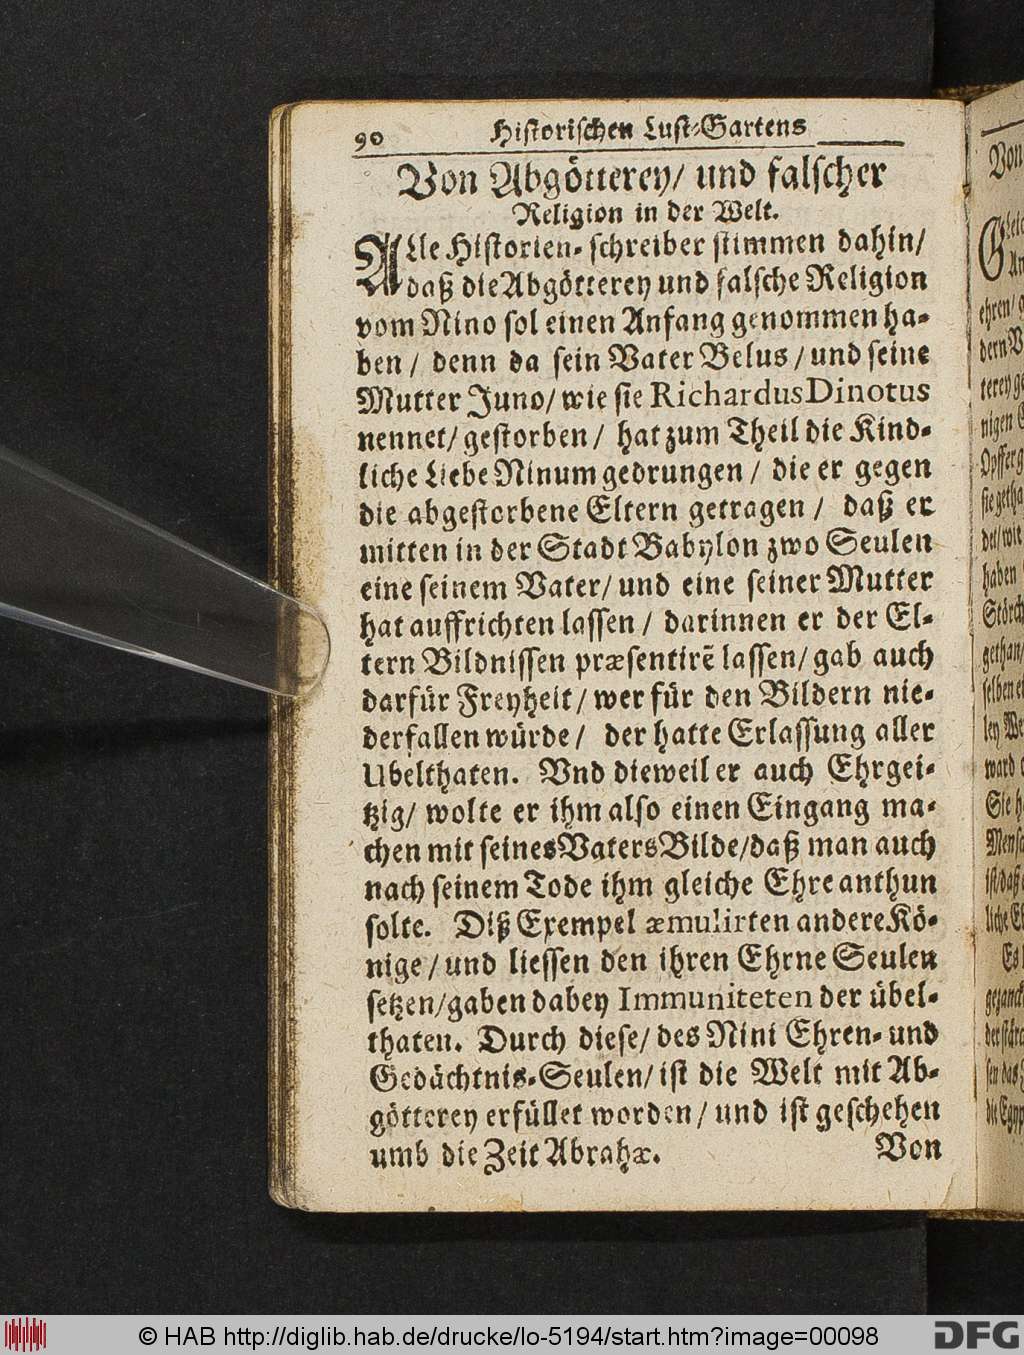 90 Historischen Lust-Gartens
Von Abgötterey/ und falscher
Religion in der Welt.
ALle Historien-schreiber stimmen dahin/
daß die Abgötterey und falsche Religion
vom Nino sol einen Anfang genommen ha-
ben / denn da sein Vater Belus / und seine
Mutter Juno/ wie sie Richardus Dinotus
nennet/ gestorben / hat zum Theil die Kind-
liche Liebe Ninum gedrungen / die er gegen
die abgestorbene Eltern getragen / daß er
mitten in der Stadt Babylon zwo Seulen
eine seinem Vater/ und eine seiner Mutter
hat auffrichten lassen / darinnen er der El-
tern Bildnissen præsentirẽ lassen/ gab auch
darfür Freyheit / wer für den Bildern nie-
derfallen würde / der hatte Erlassung aller
Ubelthaten. Vnd dieweil er auch Ehrgei-
tzig/ wolte er ihm also einen Eingang ma-
chen mit seines Vaters Bilde/daß man auch
nach seinem Tode ihm gleiche Ehre anthun
solte. Diß Exempel æmulirten andere Kö-
nige / und liessen den ihren Ehrne Seulen
setzen/gaben dabey Immuniteten der übel-
thaten. Durch diese/ des Nini Ehren- und
Gedächtnis-Seulen/ ist die Welt mit Ab-
götterey erfüllet worden / und ist geschehen
umb die Zeit Abrahæ. Von
Von
ehren/
dern
nigen
haben
Störch
gethan/
selben
ley We
ward
Sie
Mensc
Es
gezanck
die Egyp
© HAB http://diglib.hab.de/drucke/lo-5194/start.htm?image=00098
DFG